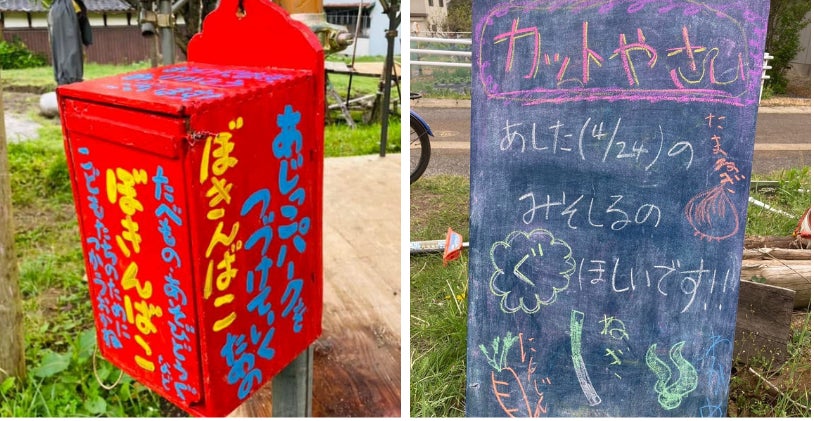 たべもの・あそびどうぐ
ぼきんばこ
こどもたちのために
つかうだよね
あじっこパークを
つづけていく
ための
ぼきんばこ
カットやさい
あした(4/24)の
みそしるの
ぐ
ほしいです!!
たまねぎ
にんじん
ねぎ